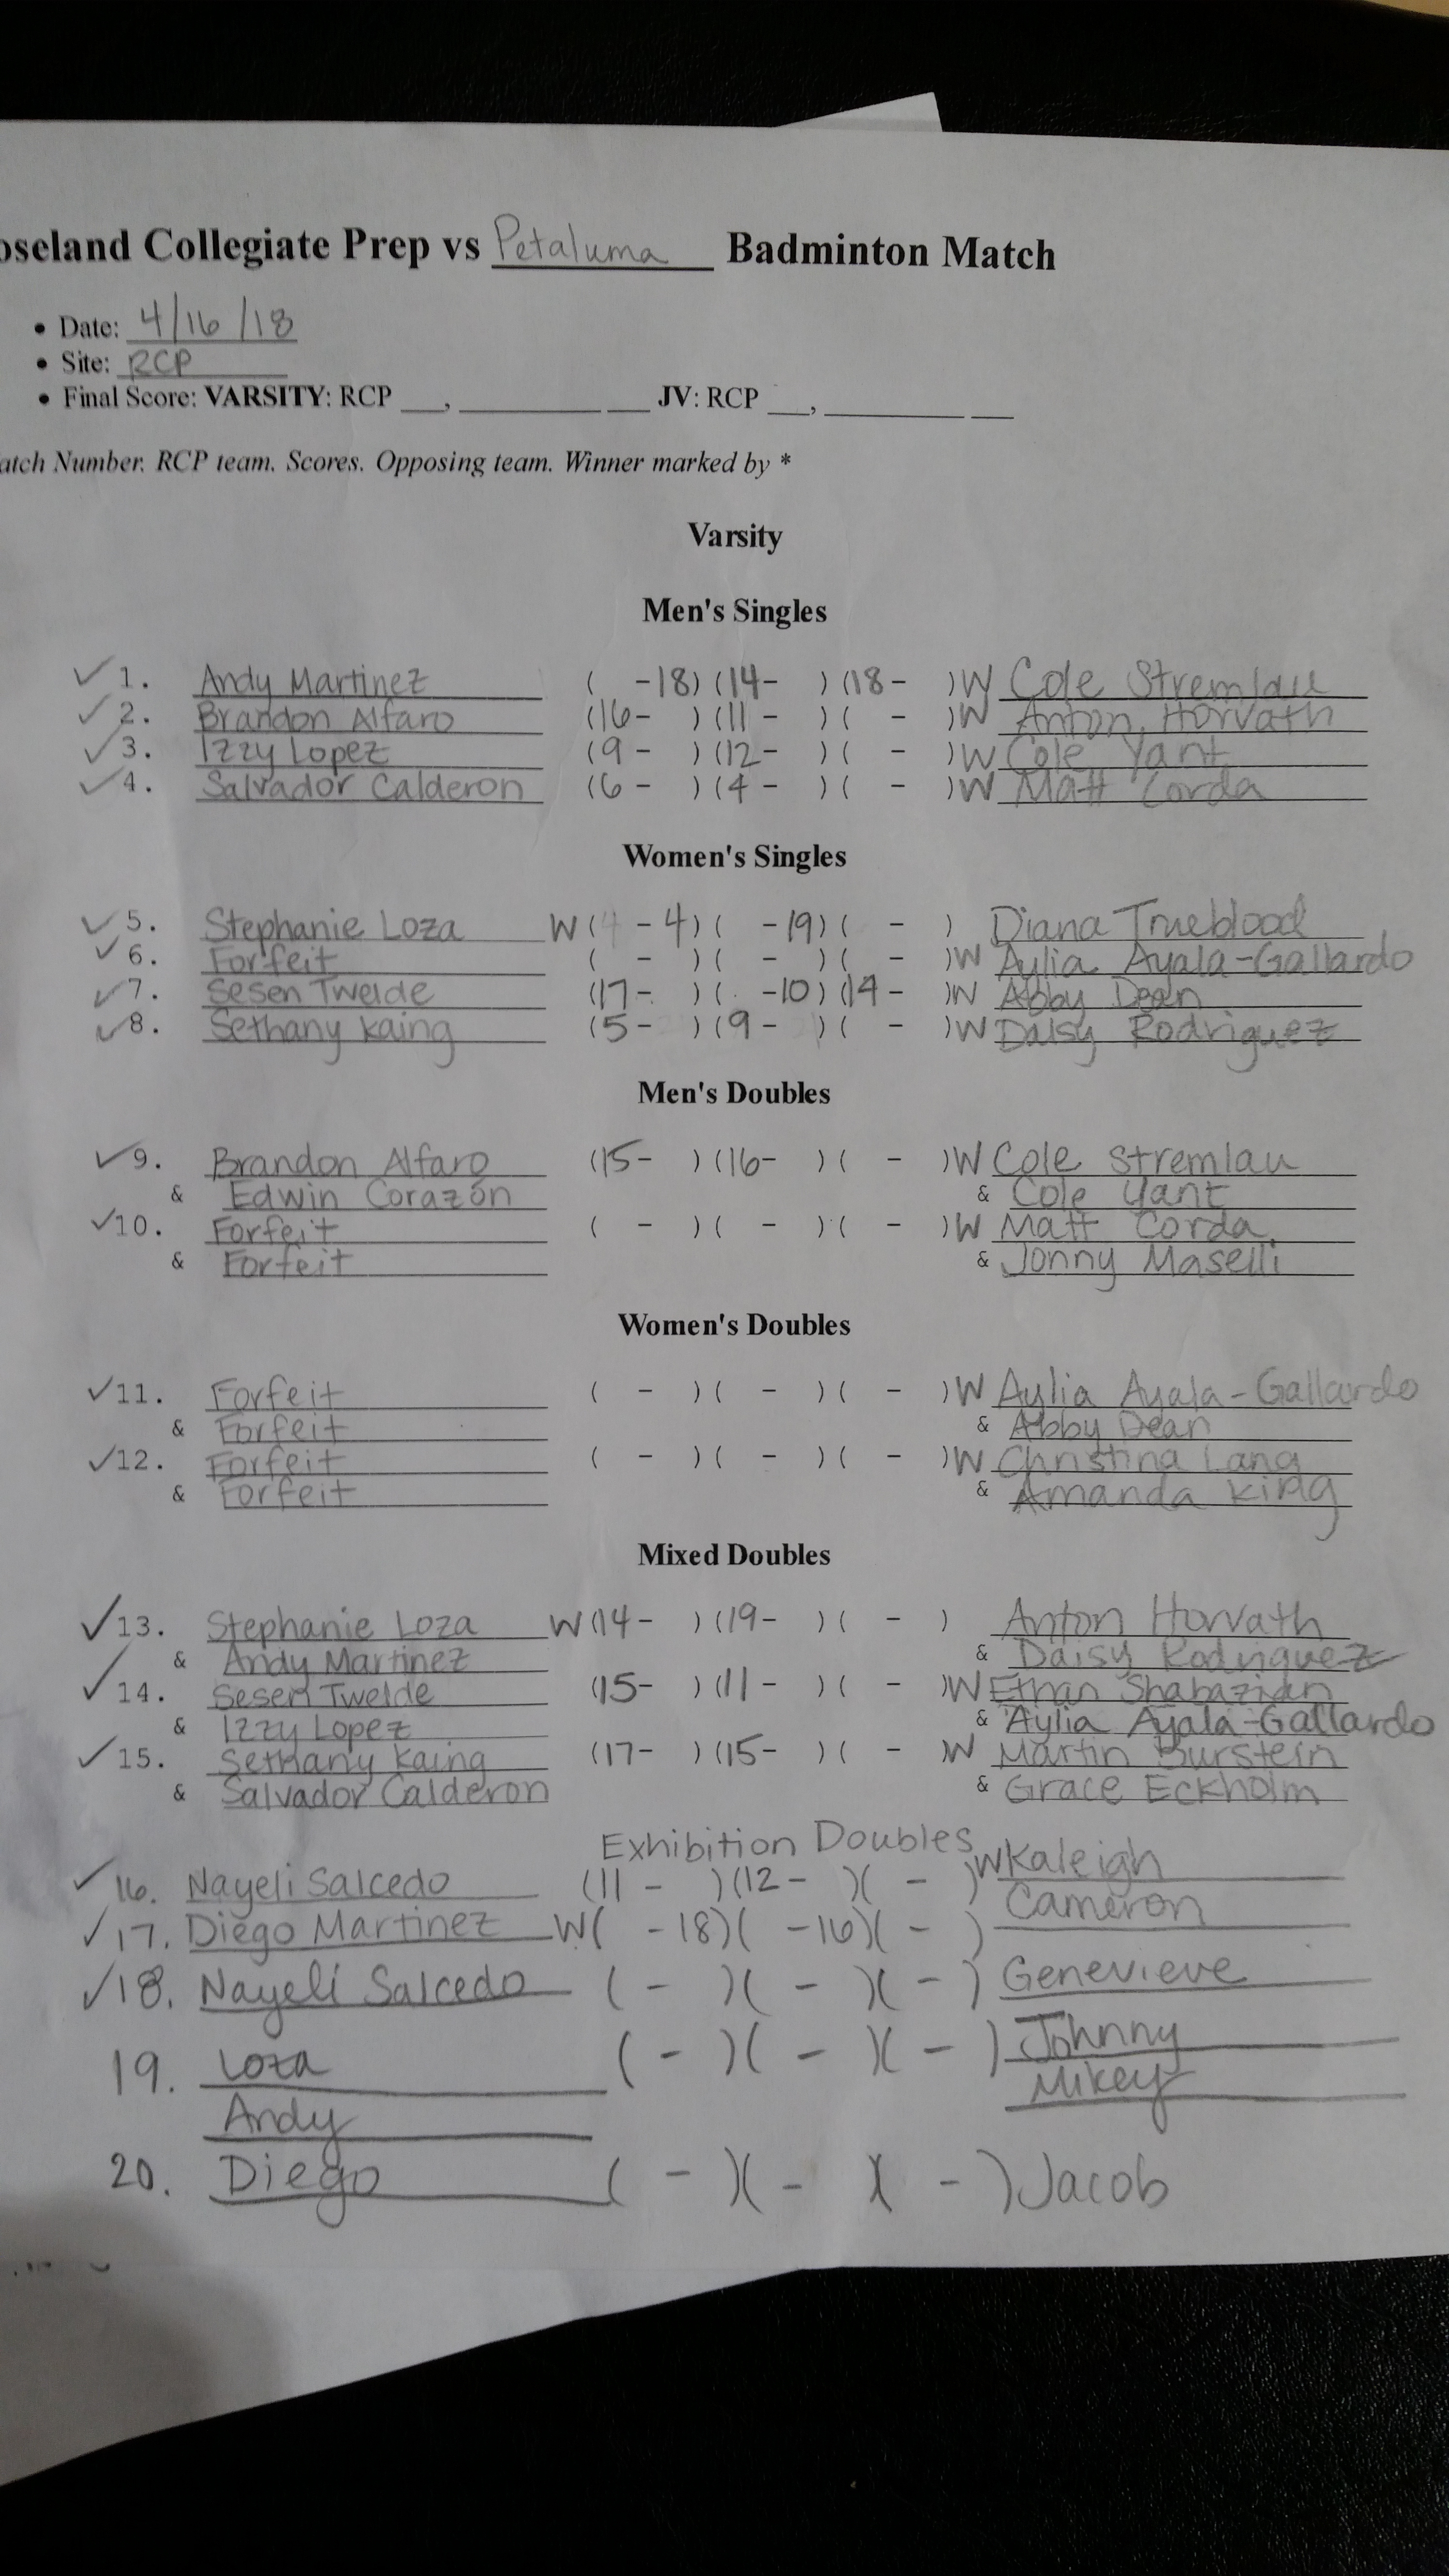 oseland Collegiate Prep vs Petaluma Badminton Match
• Date: 4/16/18
• Site: RCP
• Final Score: VARSITY: RCP ___, __________ ___ JV: RCP ___, __________ ___
atch Number. RCP team. Scores. Opposing team. Winner marked by *
Varsity
Men's Singles
✓1. Andy Martinez ( -18) (14- ) (18- )W Cole Stremlau
✓2. Brandon Alfaro (16- ) (11- ) ( - )W Anton Horvath
✓3. Izzy Lopez (9- ) (12- ) ( - )W Cole Yant
✓4. Salvador Calderon (6- ) (4- ) ( - )W Matt Corda
Women's Singles
✓5. Stephanie Loza W( -4) ( -19) ( - ) Diana Trueblood
✓6. Forfeit ( - ) ( - ) ( - )W Aylia Ayala-Gallardo
✓7. Sesen Twelde (17- ) ( -10) (14- )W Abby Dean
✓8. Sethany Kaing (5- ) (9- ) ( - )W Daisy Rodriguez
Men's Doubles
✓9. Brandon Alfaro (15- ) (16- ) ( - )W Cole Stremlau
& Edwin Corazón & Cole Yant
✓10. Forfeit ( - ) ( - ) ( - )W Matt Corda
& Forfeit & Jonny Maselli
Women's Doubles
✓11. Forfeit ( - ) ( - ) ( - )W Aylia Ayala-Gallardo
& Forfeit & Abby Dean
✓12. Forfeit ( - ) ( - ) ( - )W Christina Lang
& Forfeit & Amanda King
Mixed Doubles
✓13. Stephanie Loza W(14- ) (19- ) ( - ) Anton Horvath
& Andy Martinez & Daisy Rodriguez
✓14. Sesen Twelde (15- ) (11- ) ( - )W Ethan Shabazian
& Izzy Lopez & Aylia Ayala-Gallardo
✓15. Sethany Kaing (17- ) (15- ) ( - )W Martin Burstein
& Salvador Calderon & Grace Eckholm
Exhibition Doubles
✓16. Nayeli Salcedo (11- ) (12- ) ( - )W Kaleigh
✓17. Diego Martinez W( -18)( -16)( - ) Cameron
✓18. Nayeli Salcedo ( - )( - )( - ) Genevieve
19. Loza ( - )( - )( - ) Johnny
Andy Mikey
20. Diego ( - )( - )( - ) Jacob